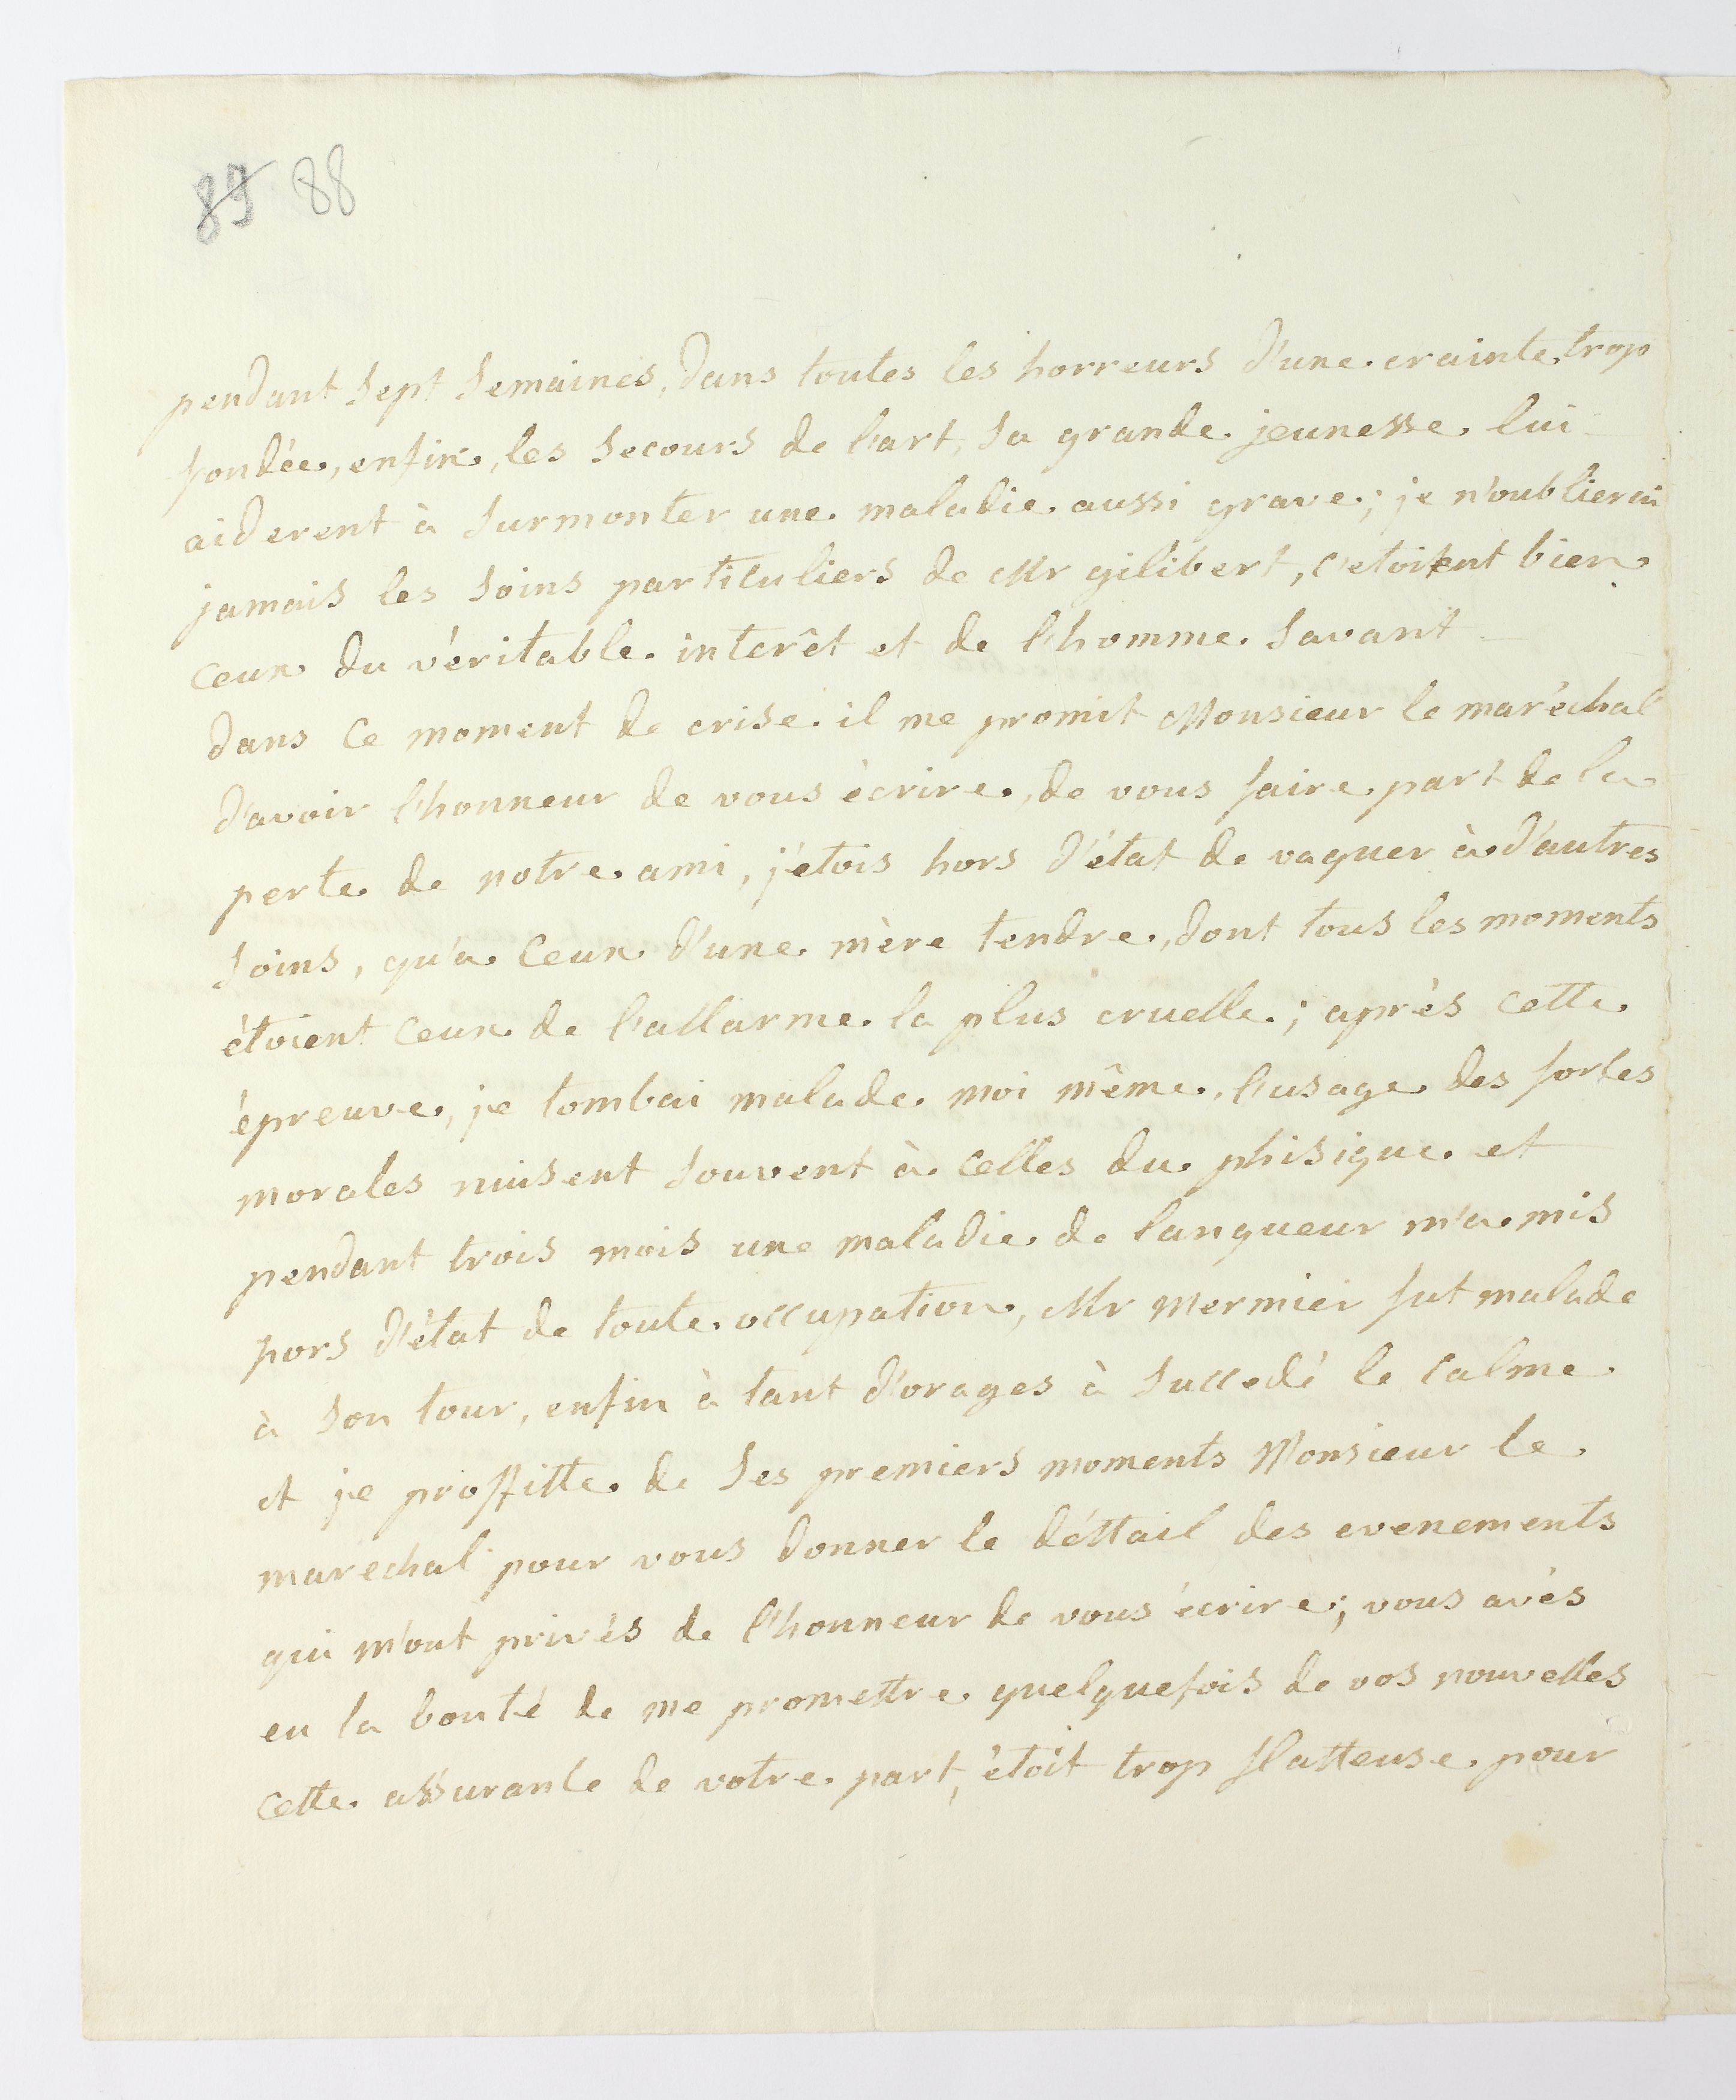 89 88
pendant sept semaines, dans toutes les horreurs d'une crainte trop
fondée, enfin, les secours de l'art, sa grande jeunesse lui
aiderent à surmonter une maladie aussi grave; je n'oublierai
jamais les soins particuliers de Mr gilibert, c'etoient bien
ceux du véritable interêt et de l'homme savant
dans ce moment de crise il me promit Monsieur le maréchal
d'avoir l'honneur de vous ècrire, de vous faire part de la
perte de notre ami, j'étois hors d'état de vaquer à d'autres
soins, qu'a ceux d'une mère tendre, dont tous les moments
étoient ceux de l'allarme la plus cruelle; après cette
épreuve, je tombai malade moi même, l'usage des forces
morales nuisent souvent à celles du phisique et
pendant trois mois une maladie de langueur m'a mis
hors d'état de toute occupation, Mr mermier fut malade
à son tour, enfin à tant d'orages à succedé le calme
et je proffitte de ses premiers moments Monsieur le
marechal pour vous donner le déttail des evenements
qui m'ont privés de l'honneur de vous écrire; vous avés
eu la bonté de me promettre quelquefois de vos nouvelles
cette assurance de votre part, étoit trop flatteuse pour